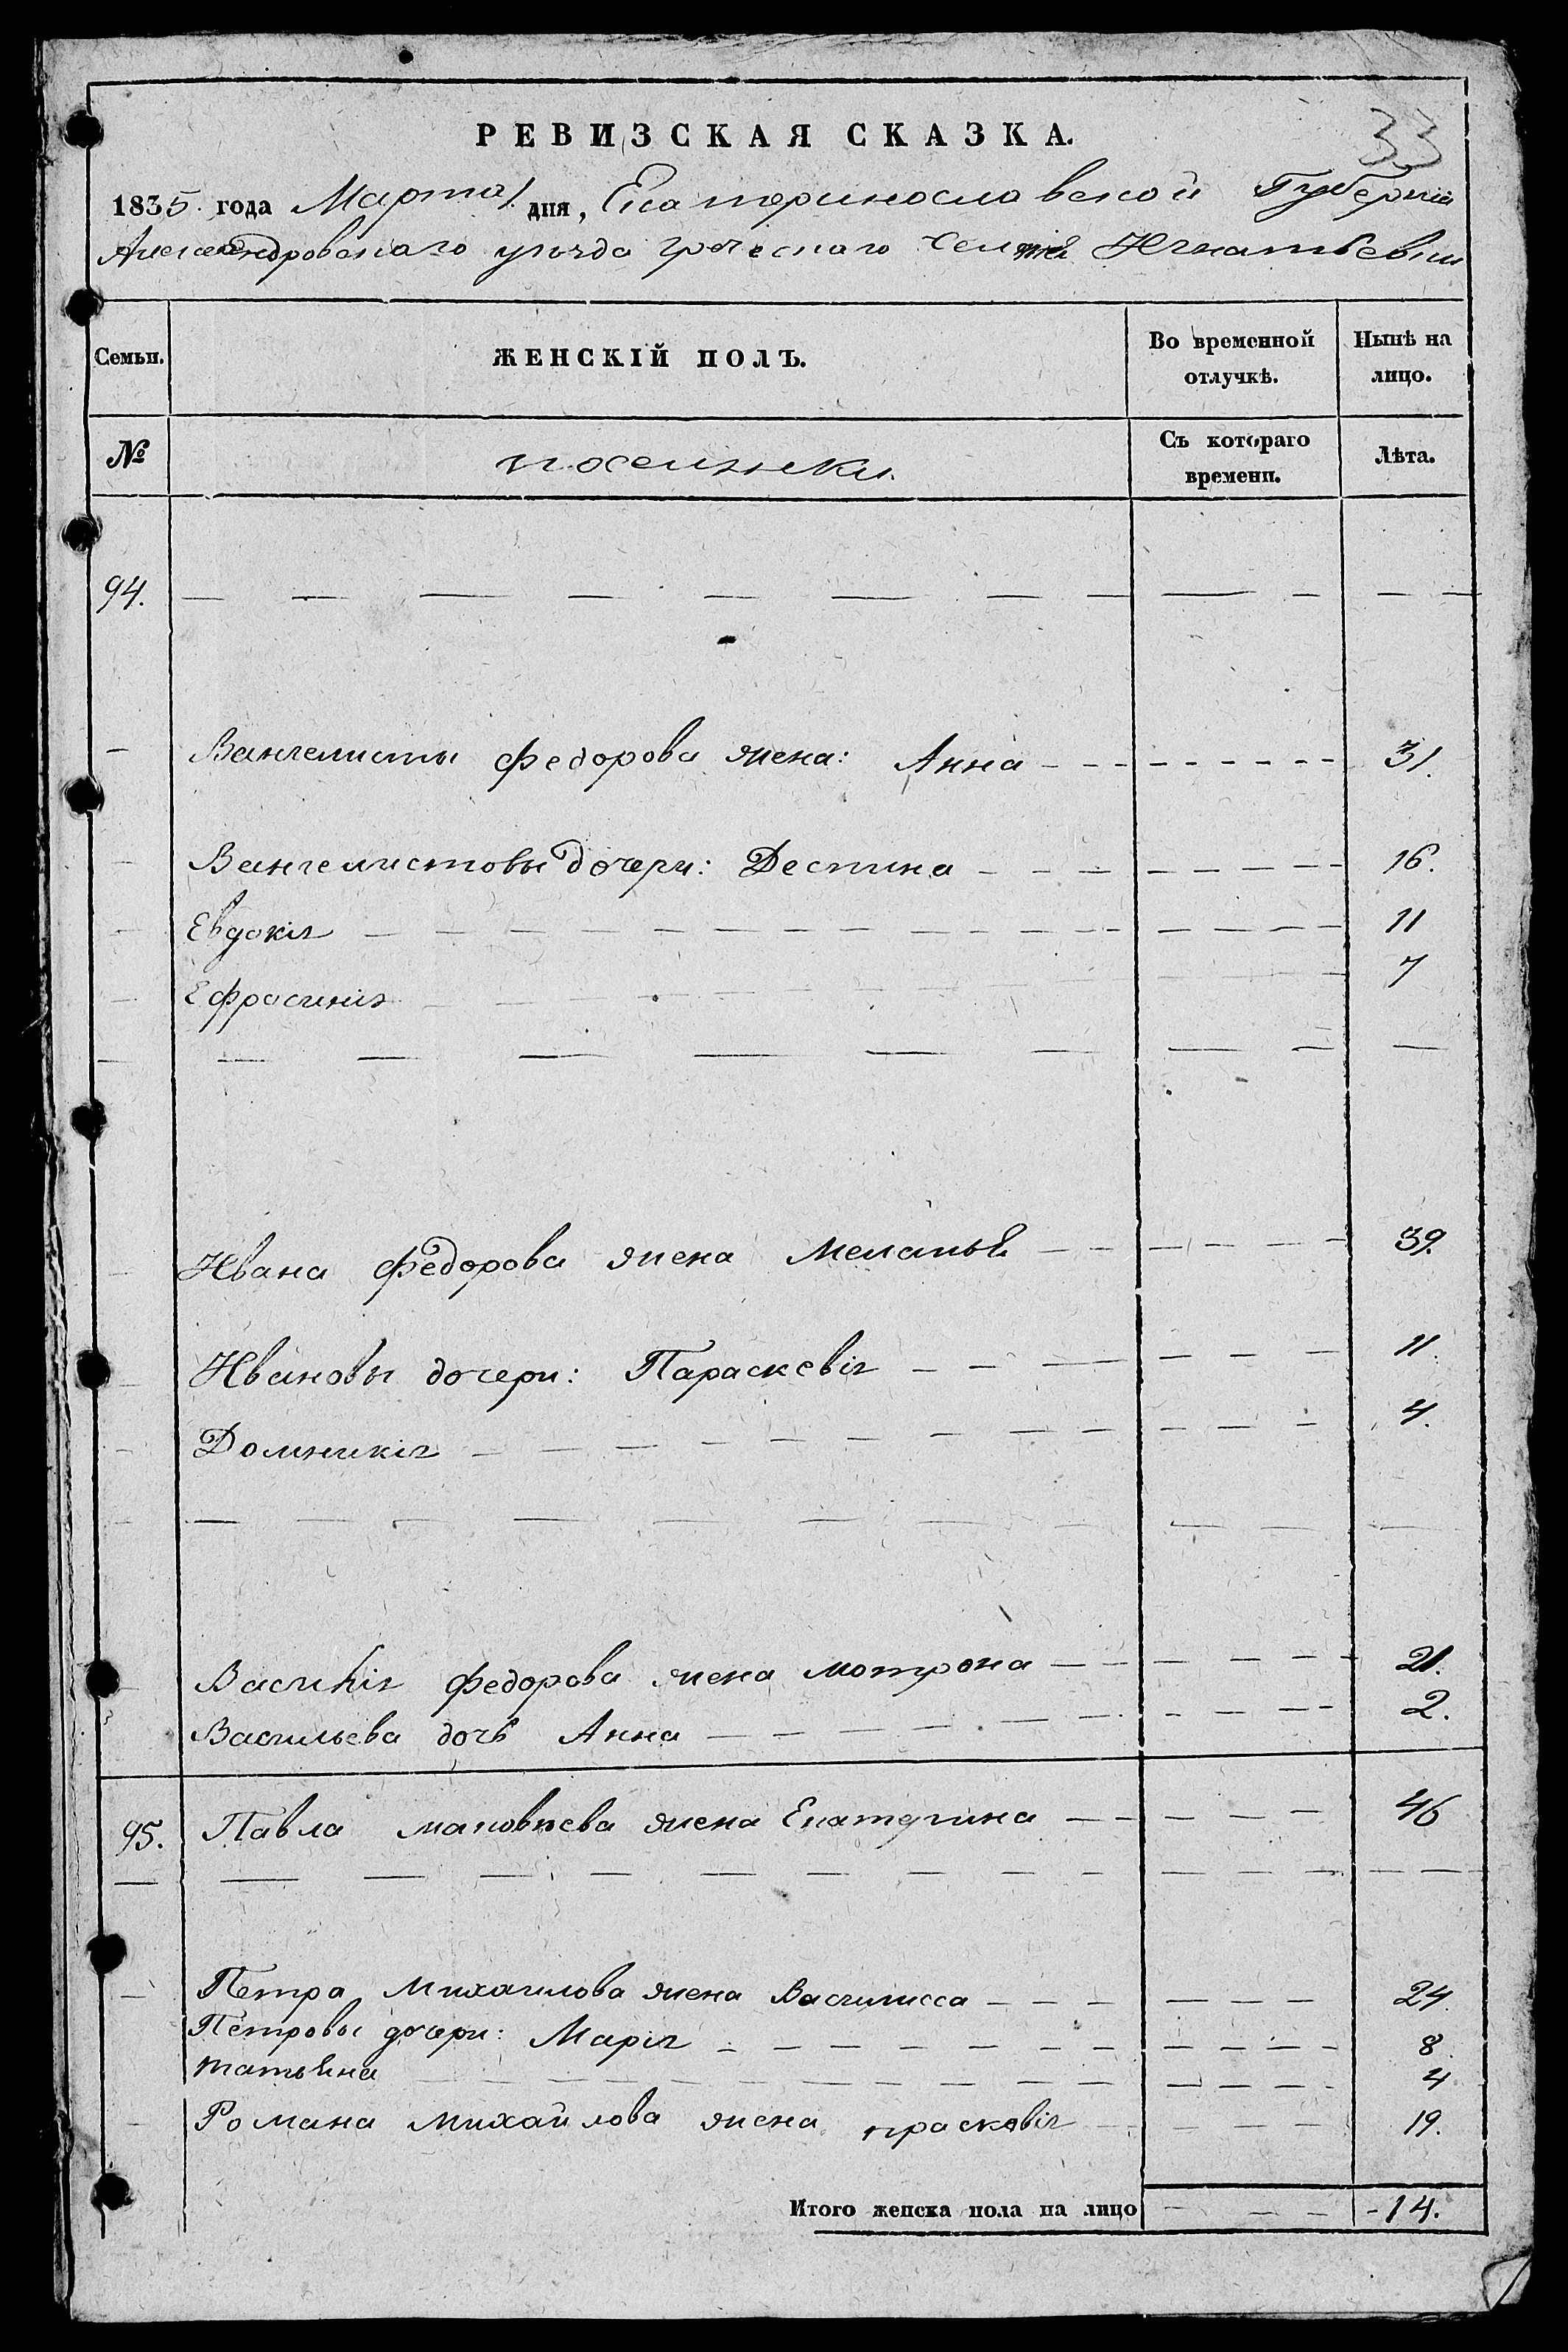 33
РЕВИЗСКАЯ СКАЗКА.
1835 года Марта 1 дня, Екатеринославской Губернiи
Александровскаго уѣзда греческаго Игнатьевки
Семьи. ЖЕНСКІЙ ПОЛЪ. Во временной отлучкѣ. Нынѣ на лицо.
№ поселянки. Съ котораго времени. Лѣта.
94. — — — — — — — — — — — —
— Вангелисты Федорова жена: Анна — — — 31.
— Вангелистовы дочери: Деспина — — — 16.
— Евдокiя — — — 11
— Ефросинiя — — — 7
— — — — — — — — — —
— Ивана Федорова жена Меланья — — — 39.
— Ивановы дочери: Параскевiя — — — 11.
— Домникiя — — — 4.
— — — — — — — — — —
— Василiя Федорова жена Мотрона — — — 21.
Васильева дочь Анна — — — 2.
95. Павла жена Екатерина — — — 46
— — — — — — — — — —
— Петра Михайлова жена Василисса — — — 24.
Петровы дочери: Марiя — — — 8.
Татьяна — — — 4
— Романа Михайлова жена прасковiя — — — 19.
Итого женска пола на лицо — — — -14.